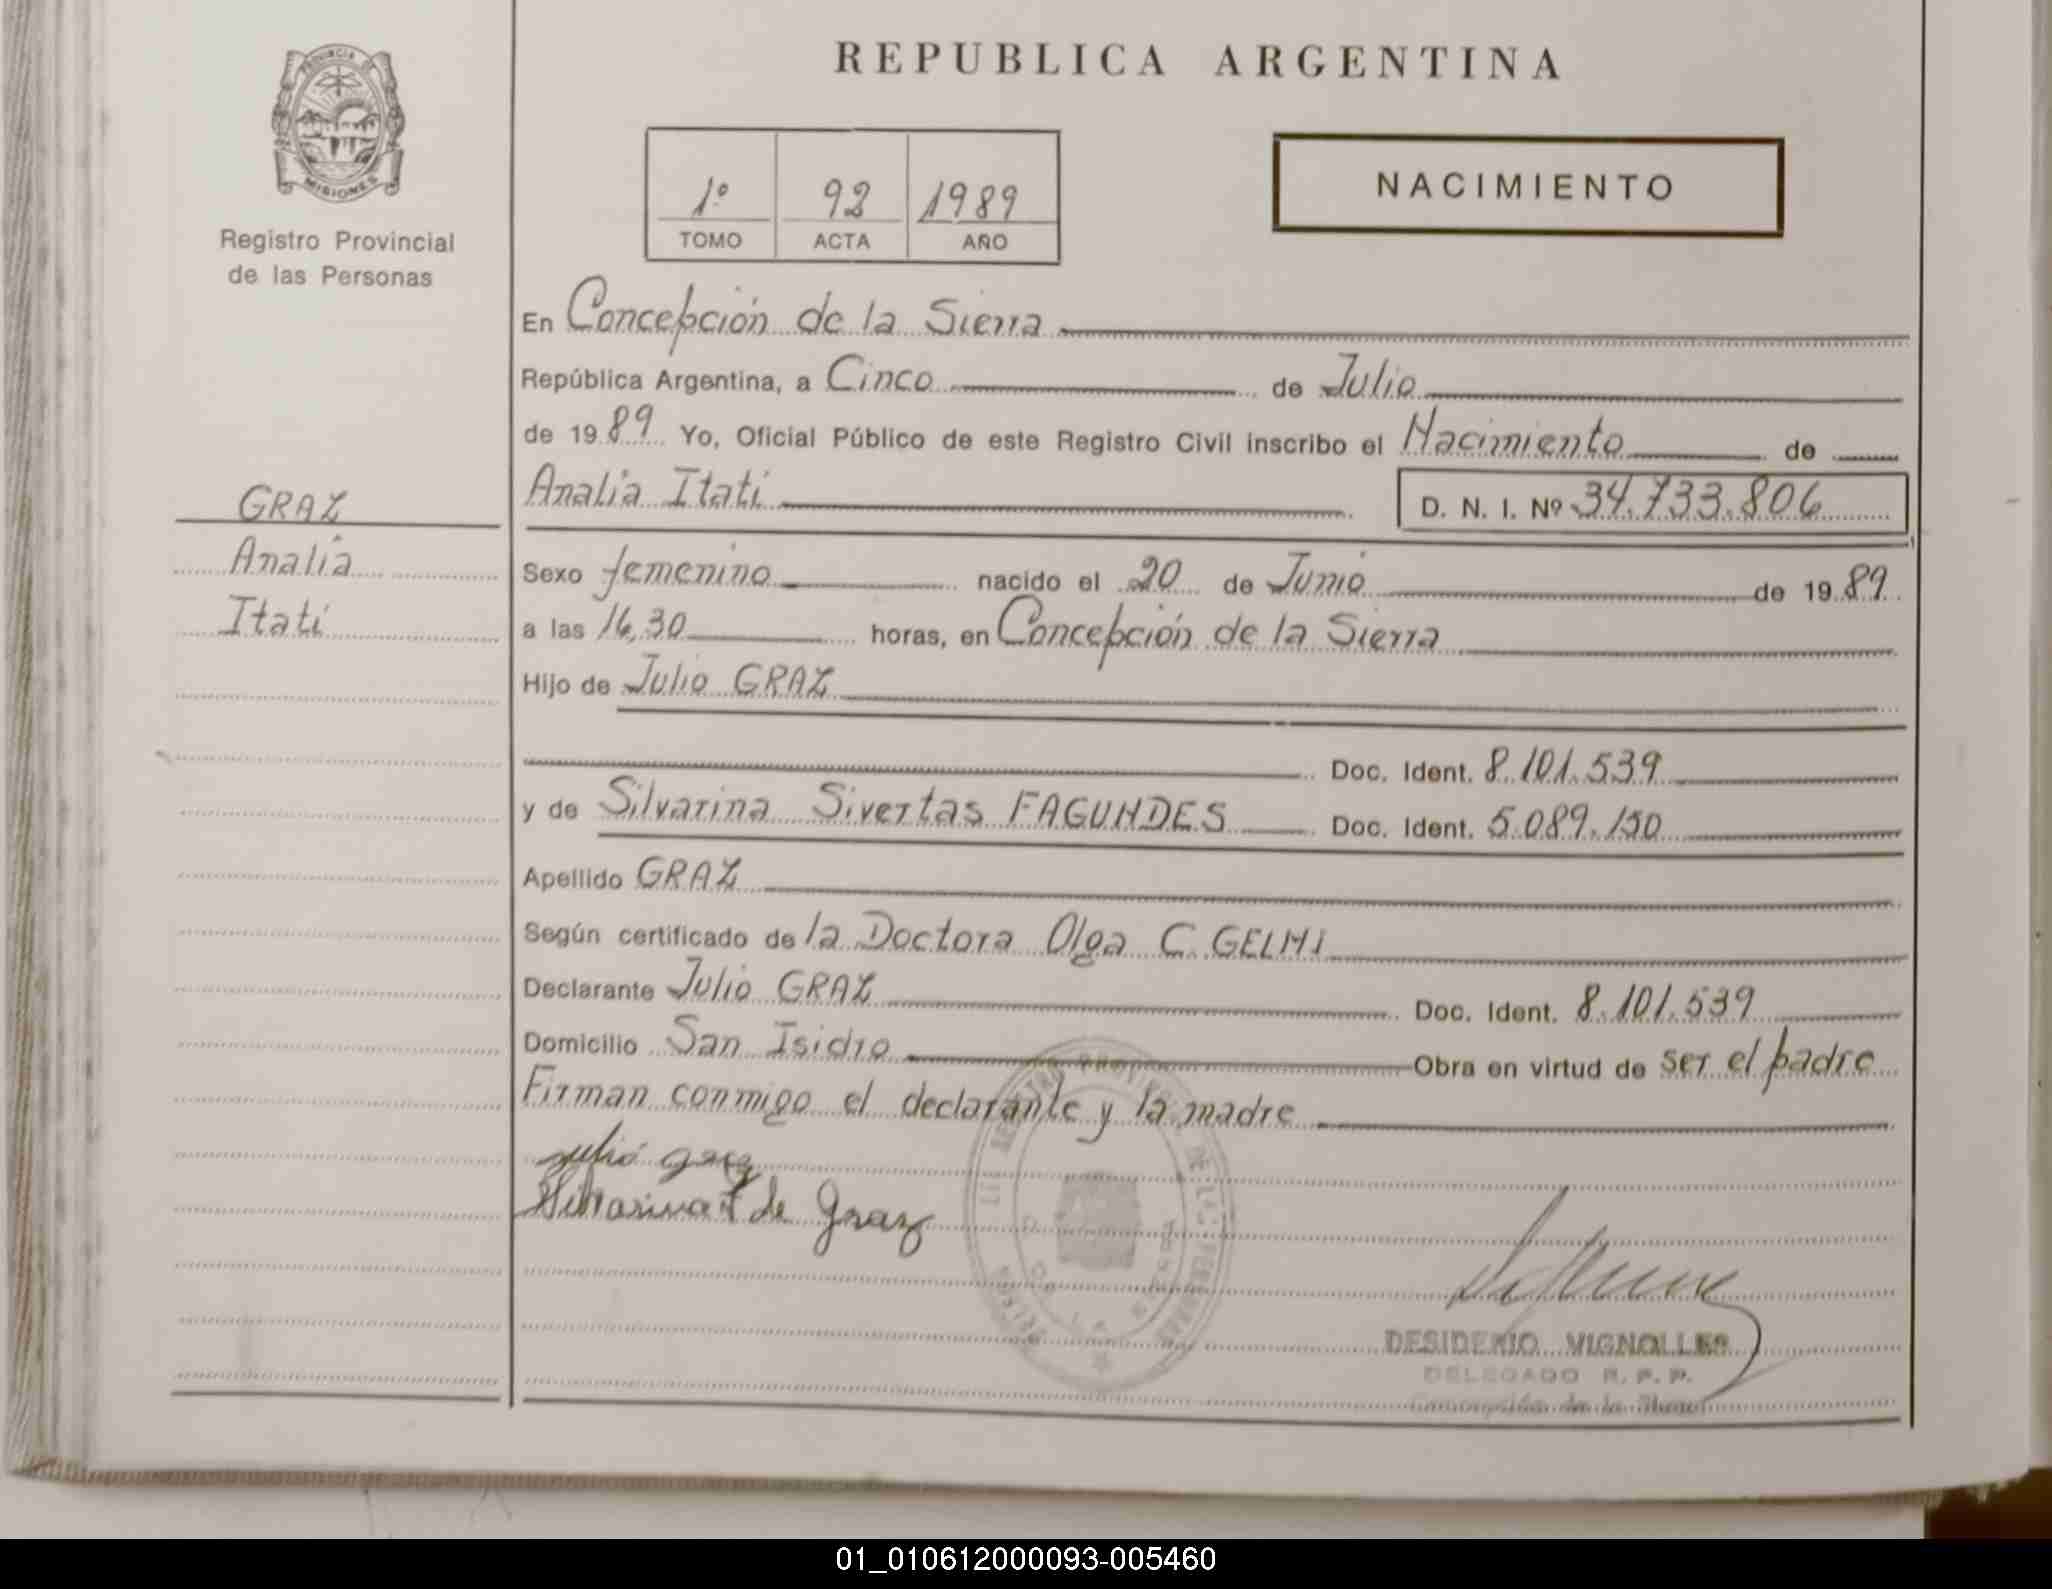 REPUBLICA ARGENTINA
PROVINCIA DE
MISIONES
Registro Provincial
de las Personas
1º 92 1989
TOMO ACTA AÑO
NACIMIENTO
En Concepción de la Sierra
República Argentina, a Cinco de Julio
de 1989 Yo, Oficial Público de este Registro Civil inscribo el Nacimiento de
Analia Itatí D. N. I. Nº 34.733.806
GRAZ
Analia
Itatí
Sexo femenino nacido el 20 de Junio de 1989
a las 16,30 horas, en Concepción de la Sierra
Hijo de Julio GRAZ
Doc. Ident. 8.101.539
y de Silvarina Sivertas FAGUNDES Doc. Ident. 5.089.150
Apellido GRAZ
Según certificado de la Doctora Olga C. GELHI
Declarante Julio GRAZ Doc. Ident. 8.101.539
Domicilio San Isidro Obra en virtud de ser el padre
Firman conmigo el declarante y la madre
julio graz
Silvarina F de Graz
DESIDERIO VIGNOLLES
DELEGADO R. P. P.
Concepción de la Sierra
01_010612000093-005460